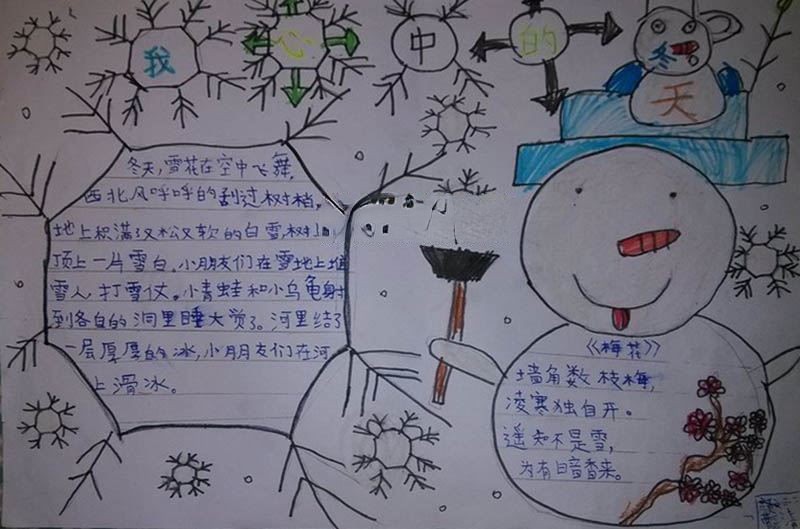 我 在 心 中 的 冬 天
冬天,雪花在空中飞舞,
西北风呼呼的刮过树梢,
地上积满又松又软的白雪,树
顶上一片雪白。小朋友们在雪地上堆
雪人,打雪仗。小青蛙和小乌龟身
到各自的洞里睡大觉了。河里结了
一层厚厚的冰,小朋友们在河
上滑冰。
《梅花》
墙角数枝梅,
凌寒独自开。
遥知不是雪,
为有暗香来。